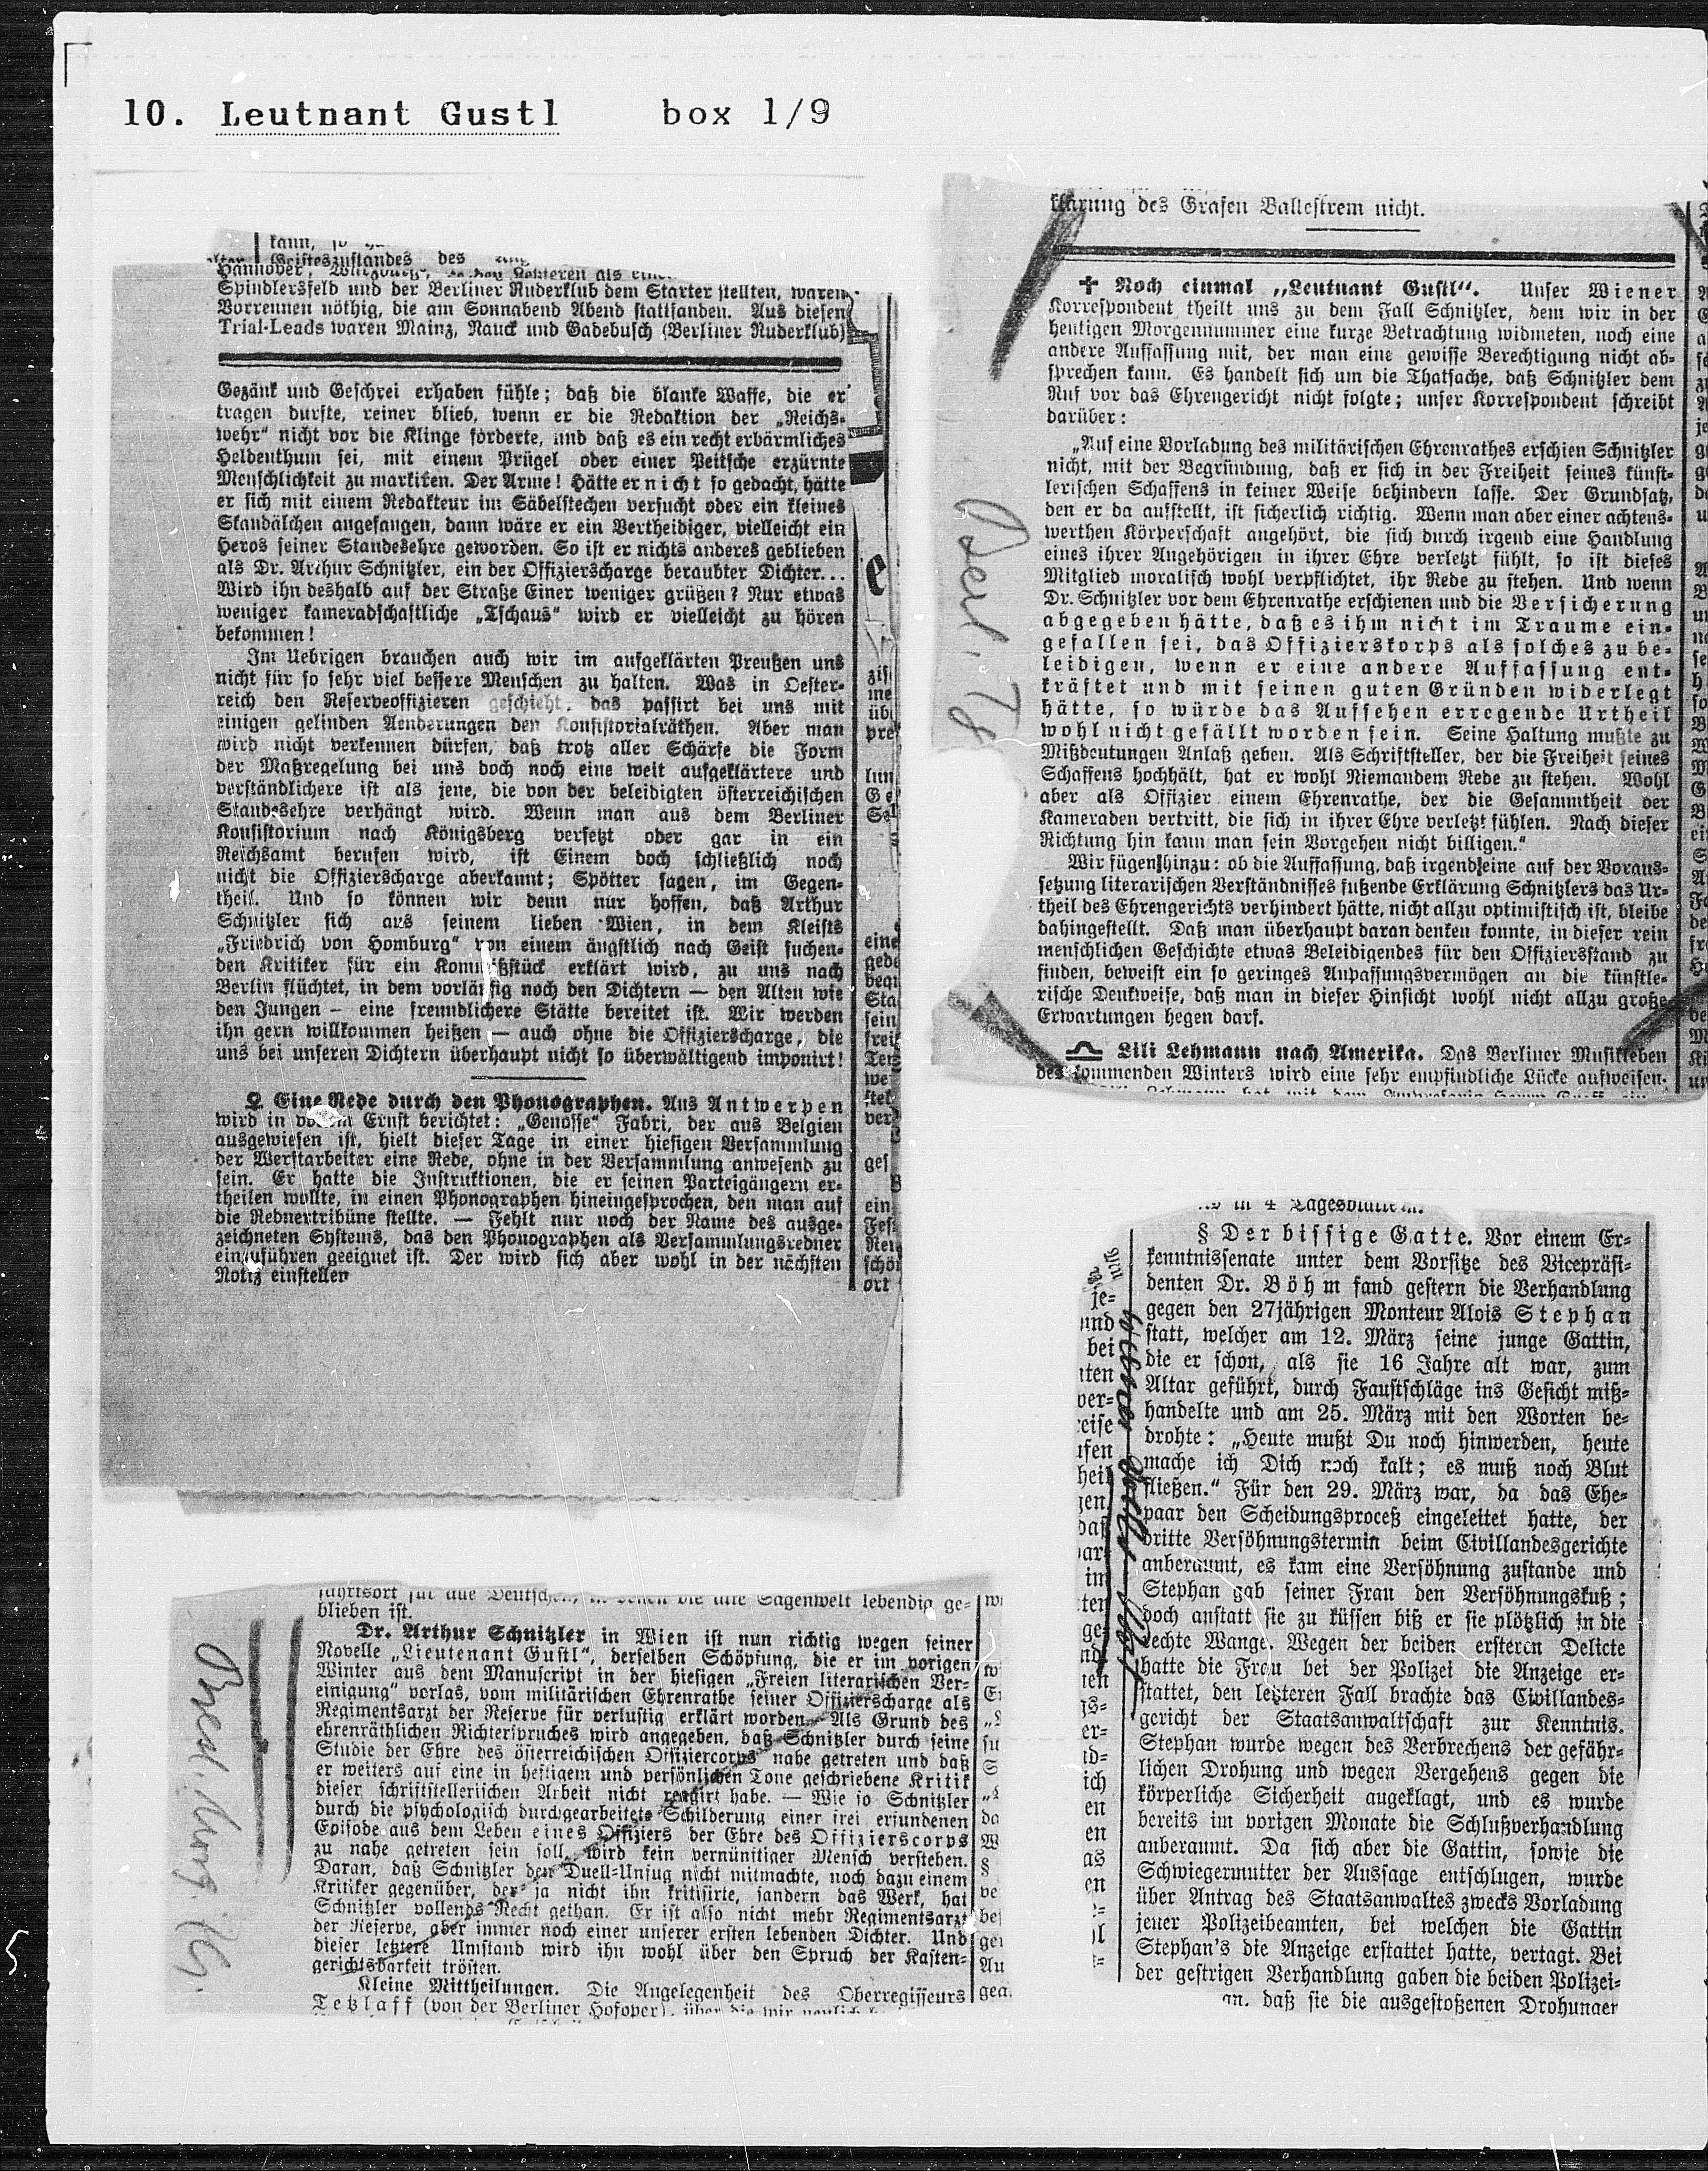 10. Leutnant Gustl box 1/9
kann, so
Geisteszustandes des
Hannover, Würzburg, den letzteren als
Spindlersfeld und der Berliner Ruderklub dem Starter stellten, waren
Vorrennen nöthig, die am Sonnabend Abend stattfanden. Aus diesen
Trial-Leads waren Mainz, Nauck und Gadebusch (Berliner Ruderklub)
Gezänk und Geschrei erhaben fühle; daß die blanke Waffe, die er
tragen durfte, reiner blieb, wenn er die Redaktion der „Reichs-
wehr“ nicht vor die Klinge forderte, und daß es ein recht erbärmliches
Heldenthum sei, mit einem Prügel oder einer Peitsche erzürnte
Menschlichkeit zu markiren. Der Arme! Hätte er nicht so gedacht, hätte
er sich mit einem Redakteur im Säbelstechen versucht oder ein kleines
Skandälchen angefangen, dann wäre er ein Vertheidiger, vielleicht ein
Heros seiner Standesehre geworden. So ist er nichts anderes geblieben
als Dr. Arthur Schnitzler, ein der Offizierscharge beraubter Dichter...
Wird ihn deshalb auf der Straße Einer weniger grüßen? Nur etwas
weniger kameradschaftliche „Tschaus“ wird er vielleicht zu hören
bekommen!
Im Uebrigen brauchen auch wir im aufgeklärten Preußen uns
nicht für so sehr viel bessere Menschen zu halten. Was in Oester-
reich den Reserveoffizieren geschieht, das passirt bei uns mit
einigen gelinden Aenderungen den Konsistorialräthen. Aber man
wird nicht verkennen dürfen, daß trotz aller Schärfe die Form
der Maßregelung bei uns doch noch eine weit aufgeklärtere und
verständlichere ist als jene, die von der beleidigten österreichischen
Standesehre verhängt wird. Wenn man aus dem Berliner
Konsistorium nach Königsberg versetzt oder gar in ein
Reichsamt berufen wird, ist Einem doch schließlich noch
nicht die Offizierscharge aberkannt; Spötter sagen, im Gegen-
theil. Und so können wir denn nur hoffen, daß Arthur
Schnitzler sich aus seinem lieben Wien, in dem Kleists
„Friedrich von Homburg“ von einem ängstlich nach Geist suchen-
den Kritiker für ein Kommißstück erklärt wird, zu uns nach
Berlin flüchtet, in dem vorläufig noch den Dichtern — den Alten wie
den Jungen — eine freundlichere Stätte bereitet ist. Wir werden
ihn gern willkommen heißen — auch ohne die Offizierscharge, die
uns bei unseren Dichtern überhaupt nicht so überwältigend imponirt!
Eine Rede durch den Phonographen. Aus Antwerpen
wird in vollem Ernst berichtet: „Genosse“ Fabri, der aus Belgien
ausgewiesen ist, hielt dieser Tage in einer hiesigen Versammlung
der Werftarbeiter eine Rede, ohne in der Versammlung anwesend zu
sein. Er hatte die Instruktionen, die er seinen Parteigängern er-
theilen wollte, in einen Phonographen hineingesprochen, den man auf
die Rednertribüne stellte. — Fehlt nur noch der Name des ausge-
zeichneten Systems, das den Phonographen als Versammlungsredner
einzuführen geeignet ist. Der wird sich aber wohl in der nächsten
Notiz einstellen
klärung des Grafen Ballestrem nicht.
✚ Noch einmal „Leutnant Gustl“. Unser Wiener
Korrespondent theilt uns zu dem Fall Schnitzler, dem wir in der
heutigen Morgennummer eine kurze Betrachtung widmeten, noch eine
andere Auffassung mit, der man eine gewisse Berechtigung nicht ab-
sprechen kann. Es handelt sich um die Thatsache, daß Schnitzler dem
Ruf vor das Ehrengericht nicht folgte; unser Korrespondent schreibt
darüber:
„Auf eine Vorladung des militärischen Ehrenrathes erschien Schnitzler
nicht, mit der Begründung, daß er sich in der Freiheit seines künst-
lerischen Schaffens in keiner Weise behindern lasse. Der Grundsatz,
den er da aufstellt, ist sicherlich richtig. Wenn man aber einer achtens-
werthen Körperschaft angehört, die sich durch irgend eine Handlung
eines ihrer Angehörigen in ihrer Ehre verletzt fühlt, so ist dieses
Mitglied moralisch wohl verpflichtet, ihr Rede zu stehen. Und wenn
Dr. Schnitzler vor dem Ehrenrathe erschienen und die Versicherung
abgegeben hätte, daß es ihm nicht im Traume ein-
gefallen sei, das Offizierskorps als solches zu be-
leidigen, wenn er eine andere Auffassung ent-
kräftet und mit seinen guten Gründen widerlegt
hätte, so würde das Aufsehen erregende Urtheil
wohl nicht gefällt worden sein. Seine Haltung mußte zu
Mißdeutungen Anlaß geben. Als Schriftsteller, der die Freiheit seines
Schaffens hochhält, hat er wohl Niemandem Rede zu stehen. Wohl
aber als Offizier einem Ehrenrathe, der die Gesammtheit der
Kameraden vertritt, die sich in ihrer Ehre verletzt fühlen. Nach dieser
Richtung hin kann man sein Vorgehen nicht billigen.“
Wir fügen hinzu: ob die Auffassung, daß irgend eine auf der Voraus-
setzung literarischen Verständnisses fußende Erklärung Schnitzlers das Ur-
theil des Ehrengerichts verhindert hätte, nicht allzu optimistisch ist, bleibe
dahingestellt. Daß man überhaupt daran denken konnte, in dieser rein
menschlichen Geschichte etwas Beleidigendes für den Offiziersstand zu
finden, beweist ein so geringes Anpassungsvermögen an die künstle-
rische Denkweise, daß man in dieser Hinsicht wohl nicht allzu große
Erwartungen hegen darf.
Lili Lehmann nach Amerika. Das Berliner Musikleben
des kommenden Winters wird eine sehr empfindliche Lücke aufweisen.
Berl. T
blieben ist.
Dr. Arthur Schnitzler in Wien ist nun richtig wegen seiner
Novelle „Lieutenant Gustl“, derselben Schöpfung, die er im vorigen
Winter aus dem Manuscript in der hiesigen „Freien literarischen Ver-
einigung“ vorlas, vom militärischen Ehrenrathe seiner Offizierscharge als
Regimentsarzt der Reserve für verlustig erklärt worden. Als Grund des
ehrenräthlichen Richterspruches wird angegeben, daß Schnitzler durch seine
Studie der Ehre des österreichischen Offiziercorps nahe getreten und daß
er weiters auf eine in heftigem und persönlichen Tone geschriebene Kritik
dieser schriftstellerischen Arbeit nicht reagirt habe. — Wie so Schnitzler
durch die psychologisch durchgearbeitete Schilderung einer frei erfundenen
Episode aus dem Leben eines Offiziers der Ehre des Offizierscorps
zu nahe getreten sein soll, wird kein vernünftiger Mensch verstehen.
Daran, daß Schnitzler den Duell-Unfug nicht mitmachte, noch dazu einem
Kritiker gegenüber, der ja nicht ihn kritisirte, sondern das Werk, hat
Schnitzler vollends Recht gethan. Er ist also nicht mehr Regimentsarzt
der Reserve, aber immer noch einer unserer ersten lebenden Dichter. Und
dieser letztere Umstand wird ihn wohl über den Spruch der Kasten-
gerichtsbarkeit trösten.
Kleine Mittheilungen. Die Angelegenheit des Oberregisseurs
Tetzlaff (von der Berliner Hofoper), über die wir neulich
Bresl. Morg. Ztg.
§ Der bissige Gatte. Vor einem Er-
kenntnissenate unter dem Vorsitze des Vicepräsi-
denten Dr. Böhm fand gestern die Verhandlung
gegen den 27jährigen Monteur Alois Stephan
statt, welcher am 12. März seine junge Gattin,
die er schon, als sie 16 Jahre alt war, zum
Altar geführt, durch Faustschläge ins Gesicht miß-
handelte und am 25. März mit den Worten be-
drohte: „Heute mußt Du noch hinwerden, heute
mache ich Dich noch kalt; es muß noch Blut
fließen.“ Für den 29. März war, da das Ehe-
paar den Scheidungsproceß eingeleitet hatte, der
dritte Versöhnungstermin beim Civillandesgerichte
anberaumt, es kam eine Versöhnung zustande und
Stephan gab seiner Frau den Versöhnungskuß;
doch anstatt sie zu küssen biß er sie plötzlich in die
rechte Wange. Wegen der beiden ersteren Delicte
hatte die Frau bei der Polizei die Anzeige er-
stattet, den letzteren Fall brachte das Civillandes-
gericht der Staatsanwaltschaft zur Kenntnis.
Stephan wurde wegen des Verbrechens der gefähr-
lichen Drohung und wegen Vergehens gegen die
körperliche Sicherheit angeklagt, und es wurde
bereits im vorigen Monate die Schlußverhandlung
anberaumt. Da sich aber die Gattin, sowie die
Schwiegermutter der Aussage entschlugen, wurde
über Antrag des Staatsanwaltes zwecks Vorladung
jener Polizeibeamten, bei welchen die Gattin
Stephan's die Anzeige erstattet hatte, vertagt. Bei
der gestrigen Verhandlung gaben die beiden Polizei-
an, daß sie die ausgestoßenen Drohungen
5